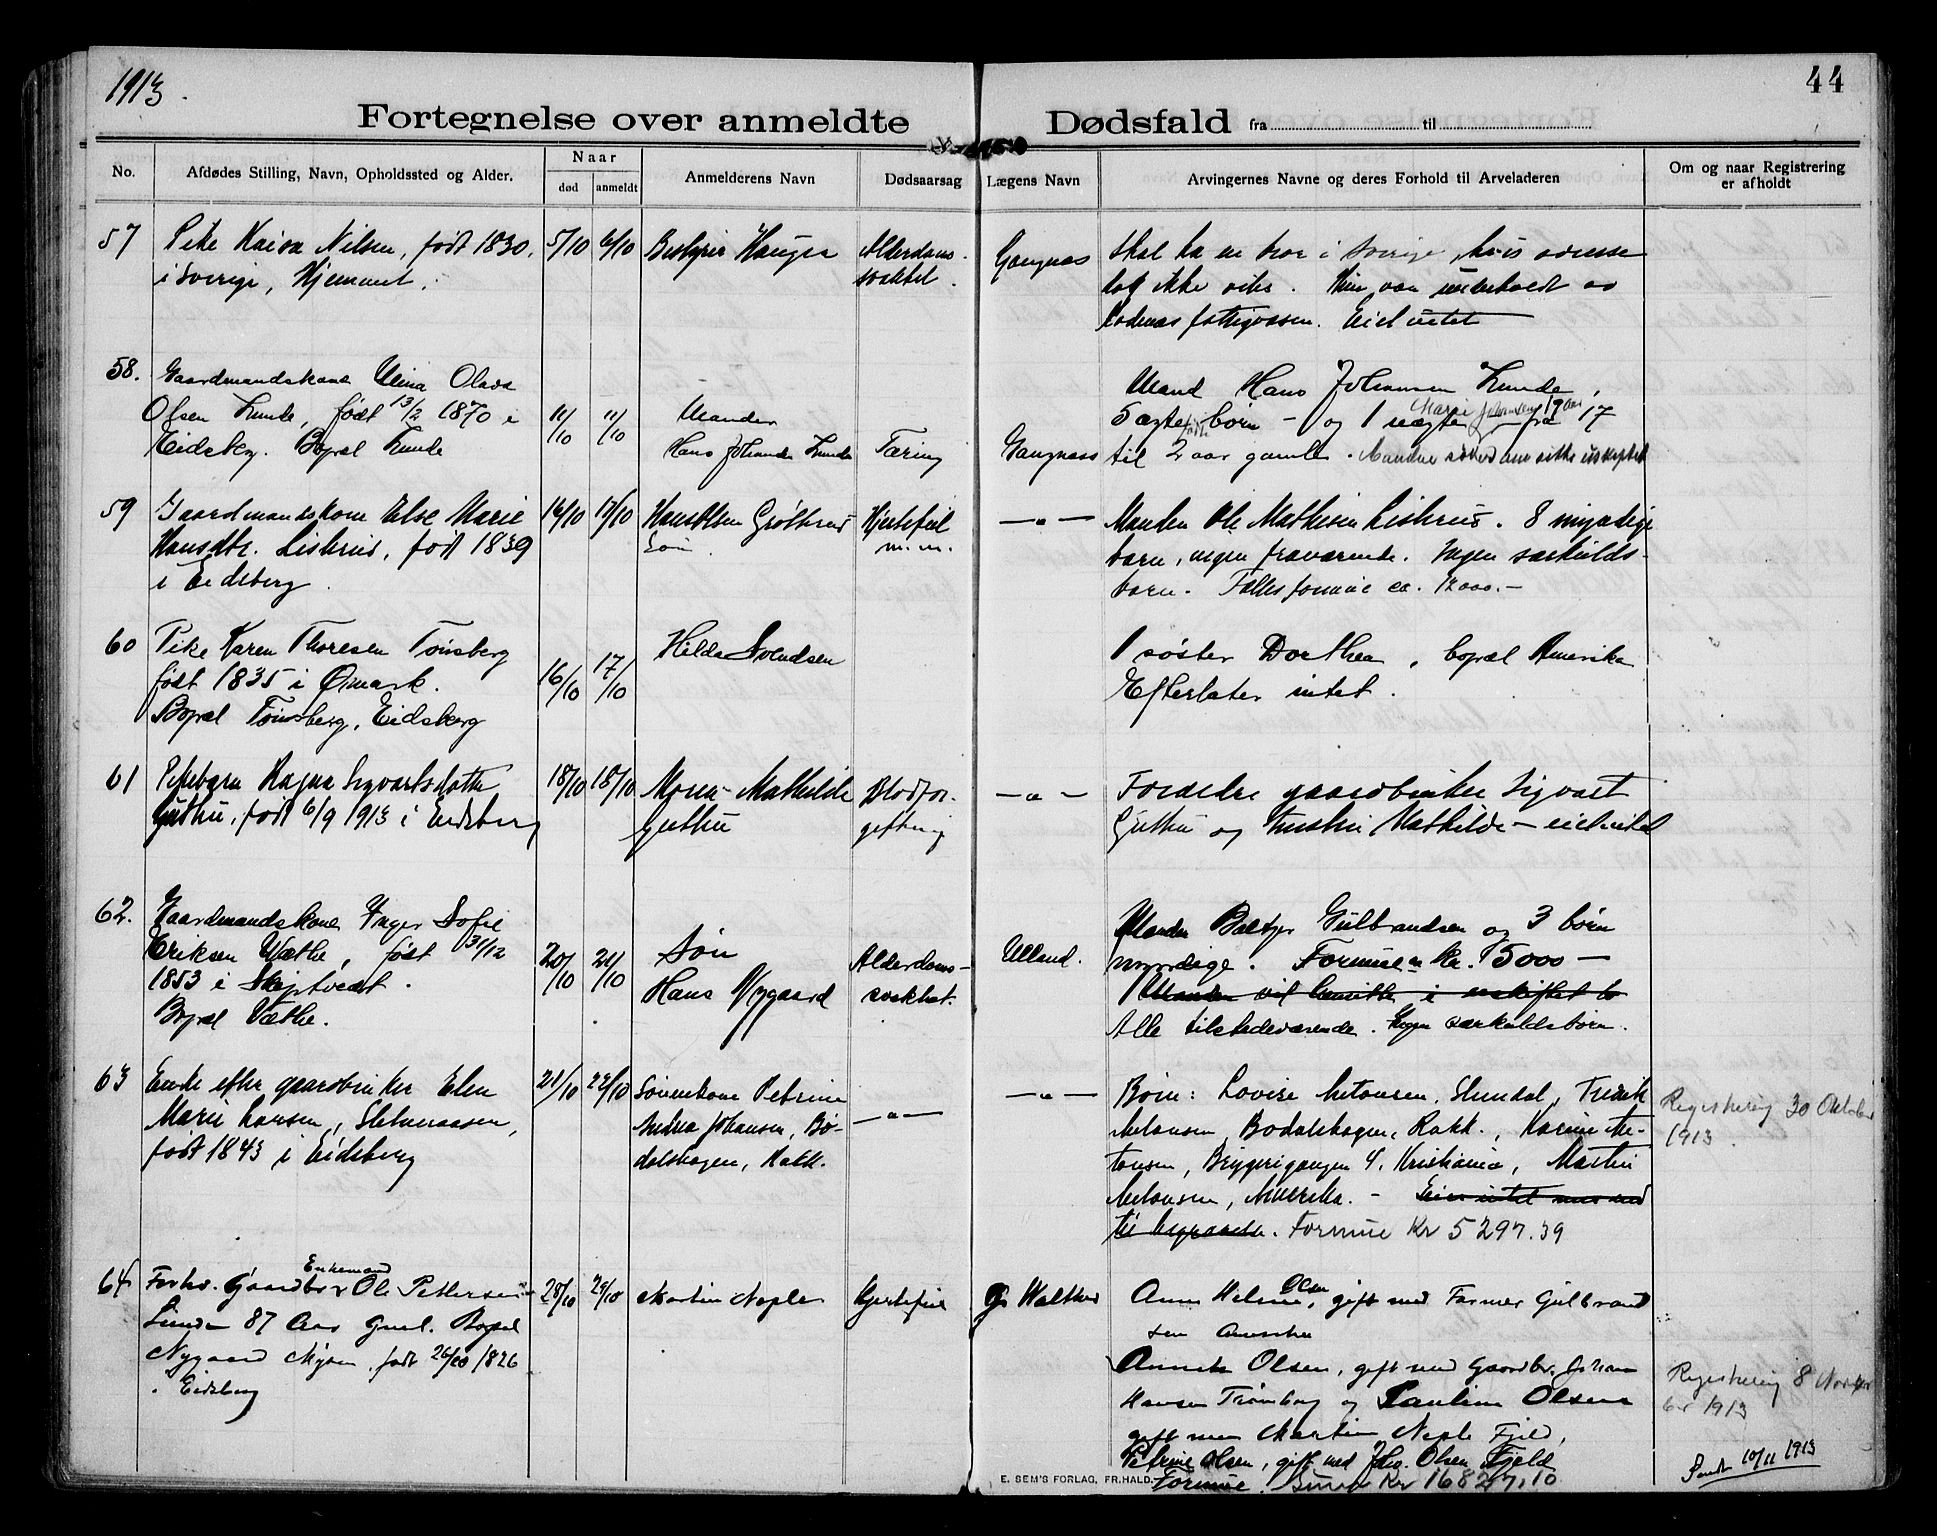 1913.
44
Fortegnelse over anmeldte Dødsfald fra til
No.
Afdødes Stilling, Navn, Opholdssted og Alder.
Naar
død
anmeldt
Anmelderens Navn
Dødsaarsag
Lægens Navn
Arvingernes Navne og deres Forhold til Arveladeren
Om og naar Registrering
er afholdt
57
Pike Kaisa Nilsen, født 1830.
i Sverige, Hjemmet.
5/10
6/10
Bestyrer Haugen
Alderdoms-
svakhet.
Gangnæs
Skal ha en bror i Sverige, hvis adresse
dog ikke vites. Hun var underholdt av
Rødenæs fattigvæsen. Eied intet
58.
Gaardmandskone Mina Olava
Olsen Lunde, født 13/2 1870 i
Eidsbg. Bopæl Lunde
11/10
11/10
Manden
Hans Johansen Lunde
Tæring
Gangnæss
Mand Hans Johansen Lunde,
5 ægtefødte børn - og 1 uægte Marie Johansen 19 aar fra 17
til 2 aar gamle. Manden sitte uskiftet
59
Gaardmandskone Else Marie
Hansdtr. Lislerud, født 1839
i Eidsberg.
16/10
17/10
Hans Olsen Grøtterud
Søn.
Hjertefeil
m.m.
—"—
Manden Ole Mathisen Lislerud. 8 myndige
barn, ingen fraværende. Ingen særkulds-
barn. Fælles formue ca. 12000.-
60
Pike Karen Thoresen Tønsberg
født 1835 i Ømark.
Bopæl Tønsberg, Eidsberg
16/10
17/10
Hilda Svendsen
1 søster Dorthea, bopæl Amerika
Efterlater intet.
61
Pikebarn Ragna Sigvartsdatter
Guthu, født 6/9 1913 i Eidsberg
18/10
18/10
Moren Mathilde
Guthu
Blodfor-
giftning
—"—
Forældre gaardbruker Sigvart
Guthu og hustru Mathilde - eied intet
62.
Gaardmandskone Inger Sofie
Eriksen Wæthe, født 31/12
1853 i Skiptvedt.
Bopæl Væthe.
20/10
21/10
Søn
Hans Nygaard
Alderdoms-
svakhet.
Ulland.
Manden Baltzer Gulbrandsen og 3 børn
myndige. Formuen kr. 5000 —
Manden vil hensitte i uskiftet bo
Alle tilstedeværende. Ingen særkuldsbørn.
63
Enke efter gaardbruker Elen
Marie Larsen, Sletneraasen,
født 1843 i Eidsberg
21/10
22/10
Sønnenkone Petrine
Andrea Johansen, Bø-
dalshagen, Rakk.
—"—
—"—
Børn: Lovise Antonsen, Slundal, Fredrik
Antonsen Bødalshagen, Rakk., Karine An-
tonsen, Bryggerigangen 4. Kristiania, Martin
Antonsen, Amerika. - Eier intet mer end
til begravelse. Formue Kr 5297.39
Registrering 30 Oktober
1913.
64
Forhv. Gaardbr Enkemand Ole Pettersen
Lunde 87 Aar gml. Bopæl
Nygaard Mysen, født 26/10 1826
i Eidsberg
28/10
29/10
Martin Nople
Hjertefeil
G. Walther
Anne Helene Olsen, gift med Farmer Gulbrand
sen Amerika
Annette Olsen, gift med Gaardbr. Johan
Hansen Trømborg og Pauline Olsen
gift med Martin Nople Fjeld,
Petrine Olsen, gift med Jho. Olsen Fjeld
Formue. Kr 16827,10
Registrering 8 Novem
ber 1913
Sendt 10/11 1913
E. SEM'S FORLAG, FR.HALD.